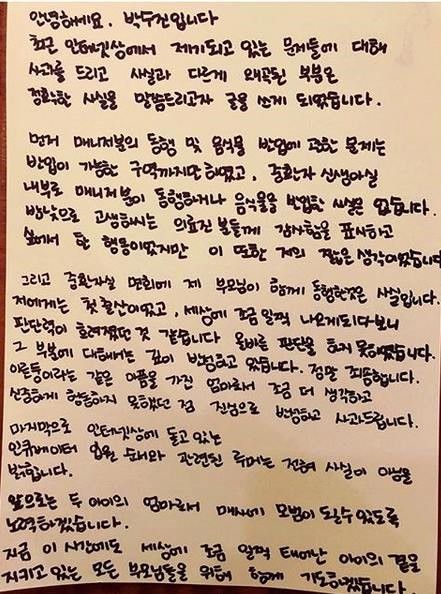 안녕하세요. 박수진입니다
최근 인터넷상에서 제기되고 있는 문제들에 대해
사과를 드리고 사실과 다르게 왜곡된 부분은
정확한 사실을 말씀드리고자 글을 쓰게 되었습니다.
먼저 매니저분의 동행 및 음식물 반입에 관한 문제는
반입이 가능한 구역까지만 하였고, 중환자 신생아실
내부로 매니저분이 동행하거나 음식물을 반입한 사실은 없습니다.
밤낮으로 고생하시는 의료진 분들께 감사함을 표시하고
싶어서 한 행동이였지만 이 또한 저의 짧은 생각이였습니다
그리고 중환자실 면회에 제 부모님이 함께 동행한것은 사실입니다.
저에게는 첫 출산이였고, 세상에 조금 일찍 나오게되다보니
판단력이 흐려졌던 것 같습니다 올바른 판단을 하지 못하였습니다.
그 부분에 대해서는 깊이 반성하고 있습니다. 정말 죄송합니다.
이른둥이라는 같은 아픔을 가진 엄마로서 조금 더 생각하고
신중하게 행동하지 못했던 점 진심으로 반성하고 사과드립니다.
마지막으로 인터넷상에 돌고 있는
인큐베이터 입원 순서와 관련된 루머는 전혀 사실이 아님을
밝힙니다.
앞으로는 두 아이의 엄마로서 매사에 모범이 되릴수 있도록
노력하겠습니다.
지금 이 시간에도 세상에 조금 일찍 태어난 아이의 곁을
지키고 있는 모든 부모님들을 위해 함께 기도하겠습니다.